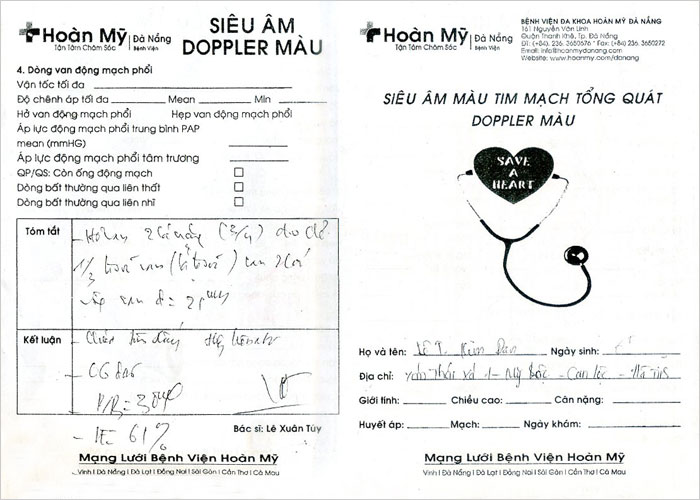 Hoàn Mỹ Đà Nẵng
Tận Tâm Chăm Sóc Bệnh Viện
SIÊU ÂM
DOPPLER MÀU
4. Dòng van động mạch phổi
Vận tốc tối đa
Độ chênh áp tối đa Mean Min
Hở van động mạch phổi Hẹp van động mạch phổi
Áp lực động mạch phổi trung bình PAP
mean (mmHG)
Áp lực động mạch phổi tâm trương
QP/QS: Còn ống động mạch
Dòng bất thường qua liên thất
Dòng bất thường qua liên nhĩ
Tóm tắt
- Hở van 2 lá nặng (3/4) do
1/3 van 2 lá
van d = 2
Kết luận
-
-
- IE 61%
Bác sĩ: Lê Xuân Túy
Mạng Lưới Bệnh Viện Hoàn Mỹ
Vinh I Đà Nẵng I Đà Lạt I Đồng Nai I Sài Gòn I Cần Thơ I Cà Mau
Hoàn Mỹ Đà Nẵng
Tận Tâm Chăm Sóc Bệnh Viện
BỆNH VIỆN ĐA KHOA HOÀN MỸ ĐÀ NẴNG
161 Nguyễn Văn Linh
Quận Thanh Khê, Tp. Đà Nẵng
ĐT: (+84). 236. 3650676 * Fax: (+84) 236. 3650272
Email: info@hoanmydanang.com
Website: www.hoanmy.com/danang
SIÊU ÂM MÀU TIM MẠCH TỔNG QUÁT
DOPPLER MÀU
SAVE
A
HEART
Họ và tên: Lê T. Ngày sinh:
Địa chỉ: xã - Mỹ Lộc - Can Lộc - Hà Tĩnh
Giới tính: Chiều cao: Cân nặng:
Huyết áp: Mạch: Ngày khám:
Mạng Lưới Bệnh Viện Hoàn Mỹ
Vinh I Đà Nẵng I Đà Lạt I Đồng Nai I Sài Gòn I Cần Thơ I Cà Mau